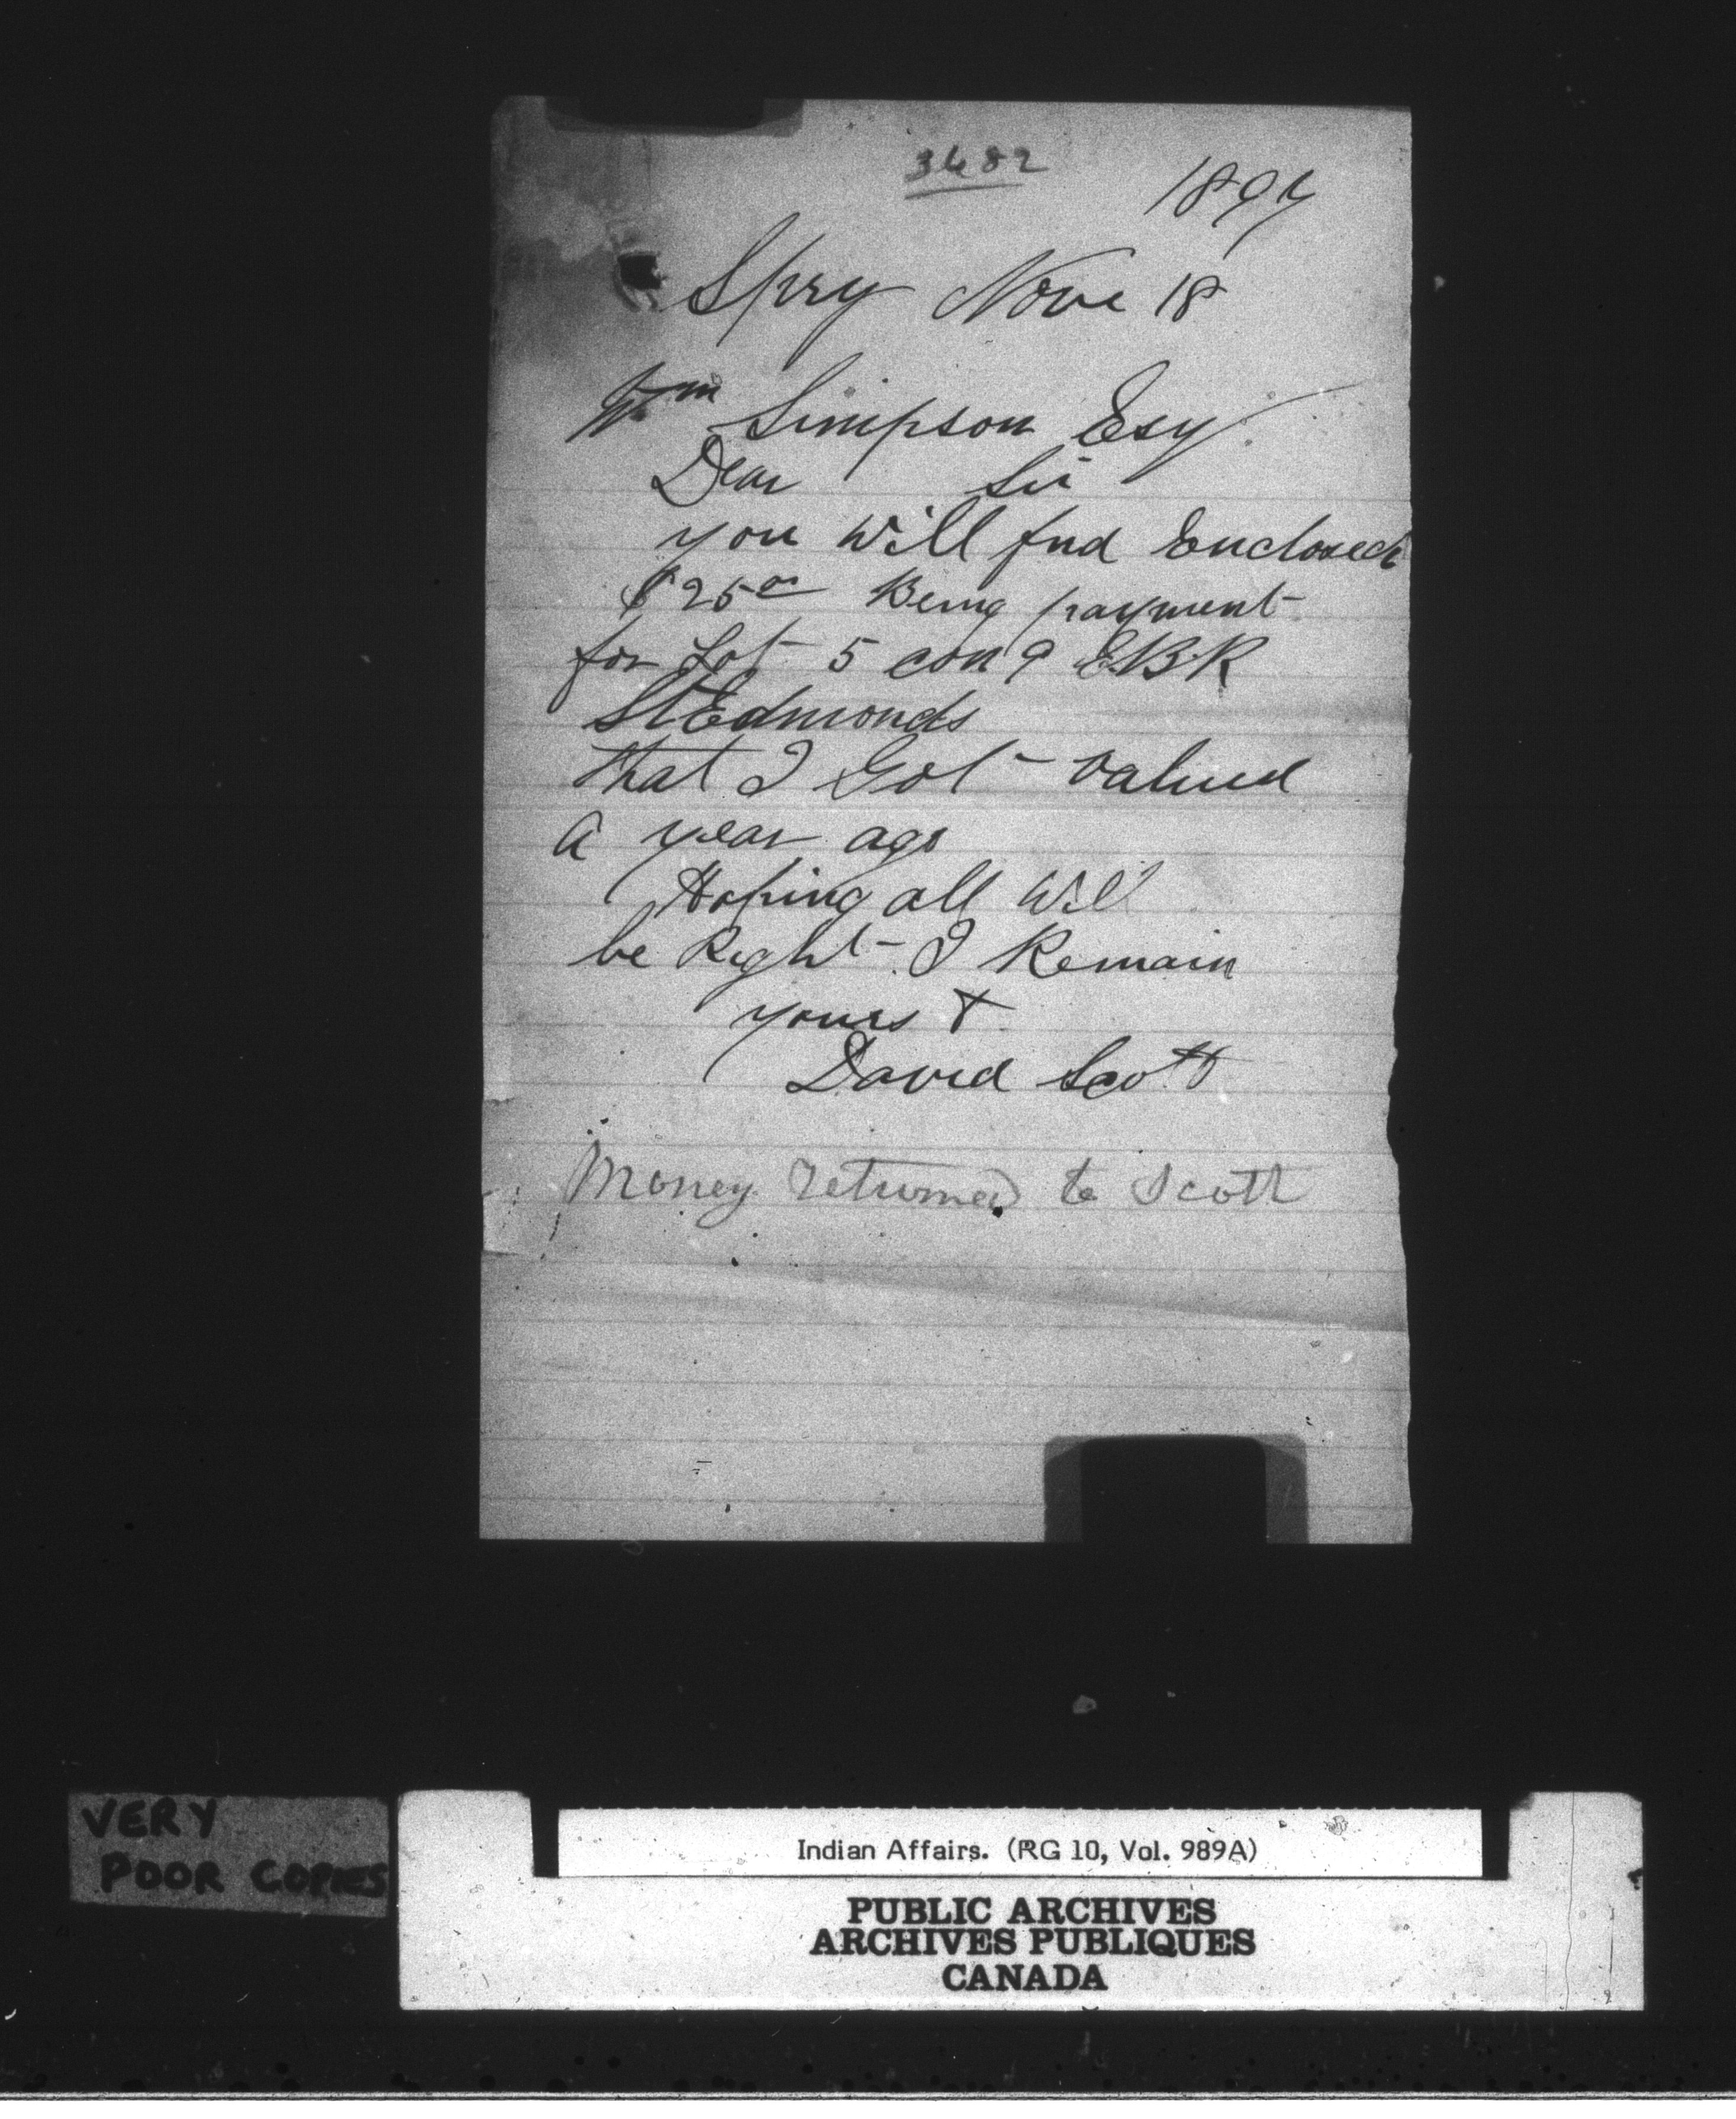 3682
1897
Spry Nove 18
Wm Simpson Esq
Dear Sir
you will fnd Enclosed
$25 00 Being payment
for Lot 5 con 9 EBR
St Edmonds
that I Got valued
a year ago
Hoping all Will
be Right I Remain
yours &
David Scott
Money returned to Scott
VERY
POOR COPIES
Indian Affairs. (RG 10, Vol. 989A)
PUBLIC ARCHIVES
ARCHIVES PUBLIQUES
CANADA